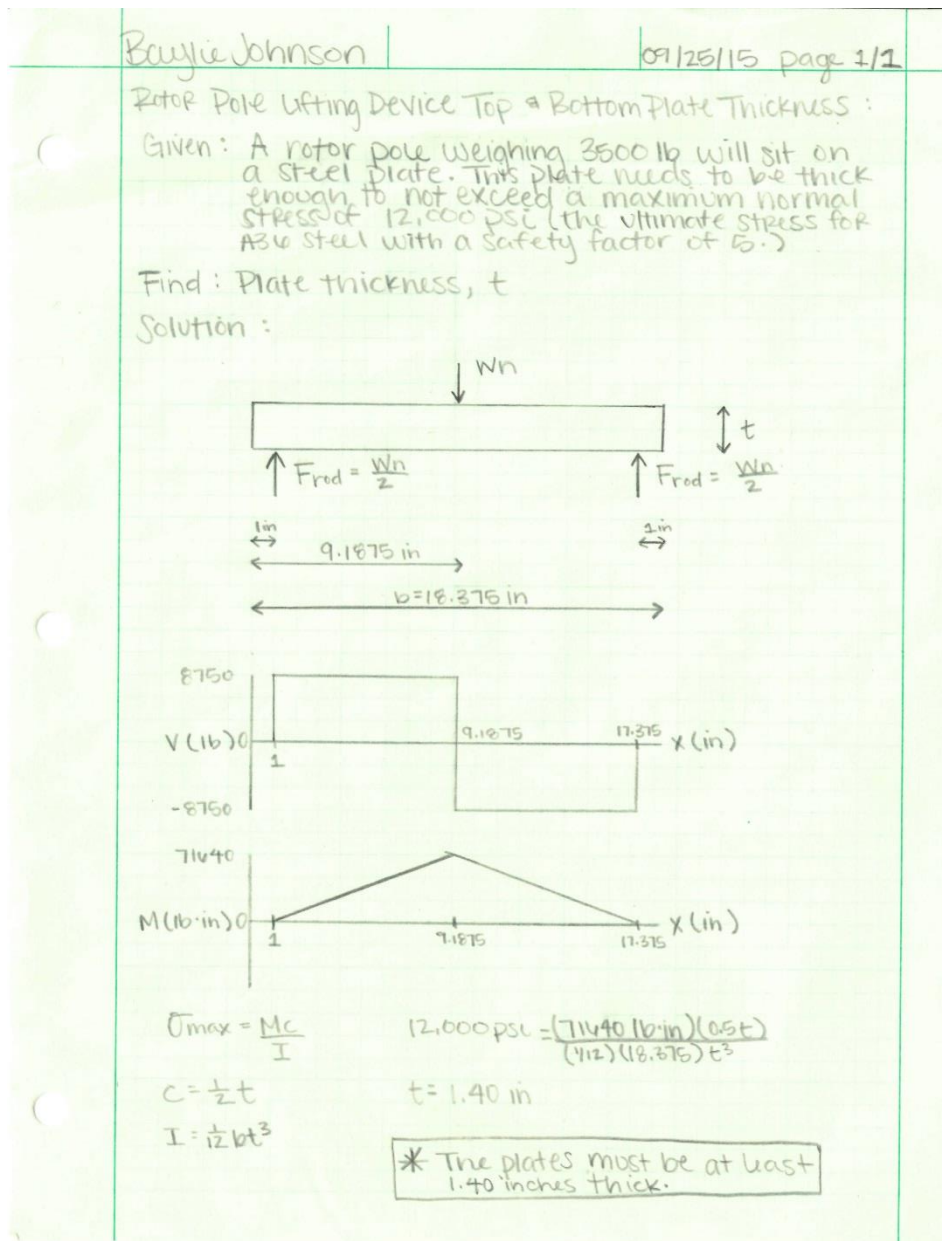 Baylie Johnson 09/25/15 page 1/1
Rotor Pole Lifting Device Top & Bottom Plate Thickness :
Given : A rotor pole weighing 3500 lb will sit on
a steel plate. This plate needs to be thick
enough to not exceed a maximum normal
stress of 12,000 psi (the ultimate stress for
A36 steel with a safety factor of 5.)
Find : Plate thickness, t
Solution :
Wn
t
Frod = Wn/2 Frod = Wn/2
1in 1in
9.1875 in
b=18.375 in
8750
V (lb) 0 1 9.1875 17.375 x (in)
-8750
71640
M (lb·in) 0 1 9.1875 17.375 x (in)
σmax = Mc/I 12,000 psi = (71640 lb·in)(0.5t)/(1/12)(18.375)t³
c = ½ t t = 1.40 in
I = 1/12 bt³
* The plates must be at least
1.40 inches thick.